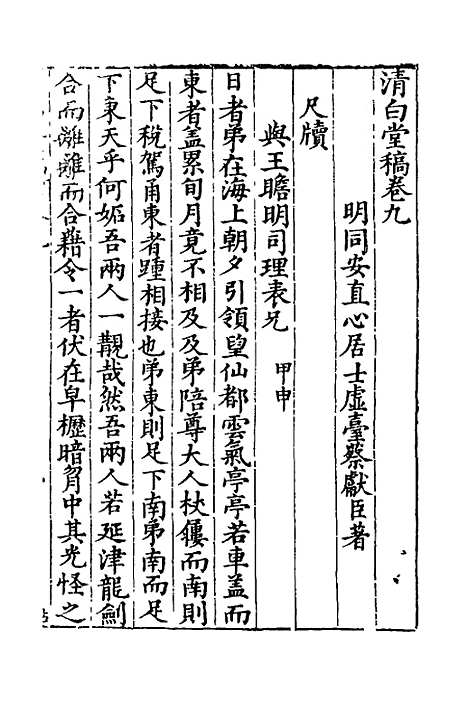 清白堂稿卷九
明同安直心居士虛臺蔡獻臣著
尺牘
與王瞻明司理表兄 甲申
日者弟在海上朝夕引領望仙都雲氣亭亭若車蓋而
東者蓋累旬月竟不相及及弟陪尊大人杖屨而南則
足下稅駕甬東者踵相接也弟東則足下南弟南而足
下東天乎何妬吾兩人一覯哉然吾兩人若延津龍劍
合而離離而合藉令一者伏在皁櫪暗莧中其光怪之